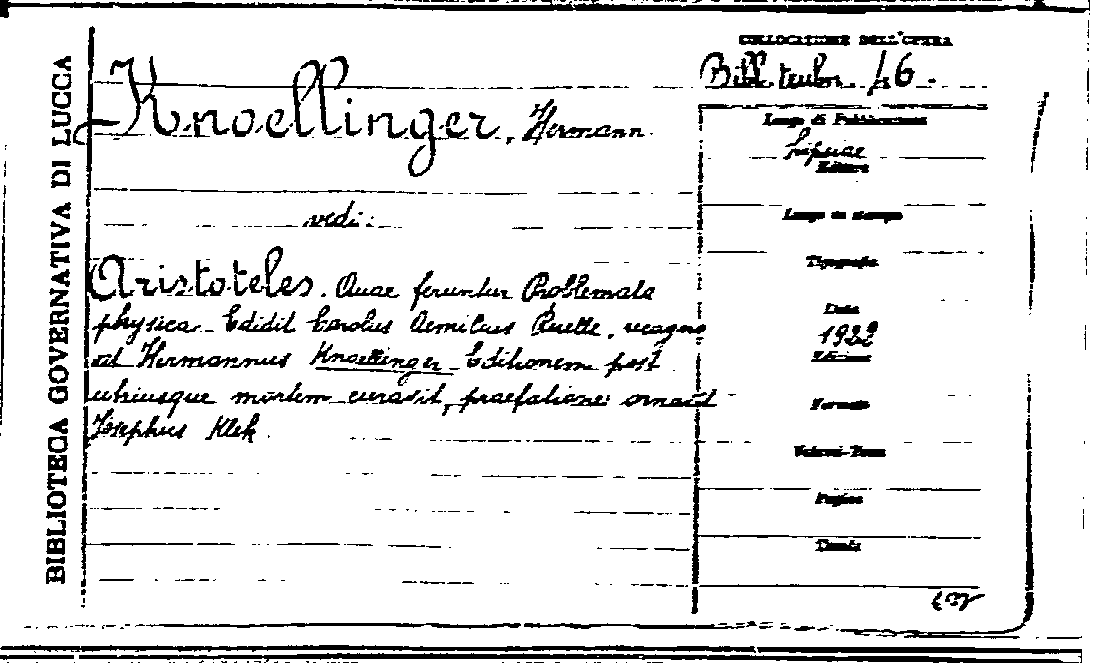 BIBLIOTECA GOVERNATIVA DI LUCCA
Knoellinger, Hermann
vedi:
Aristoteles. Quae feruntur Problemata
physica. Edidit Carolus Aemilius Ruelle, recogno
vit Hermannus Knoellinger. Editionem post
utriusque mortem curavit, praefatione ornavit
Josephus Klek
COLLOCAZIONE DELL'OPERA
Bibl. teubn. 46.
Luogo di Pubblicazione
Lipsiae
Editore
Luogo di stampa
Tipografia
Data
1922
Edizione
Formato
Volumi-Tomi
Pagine